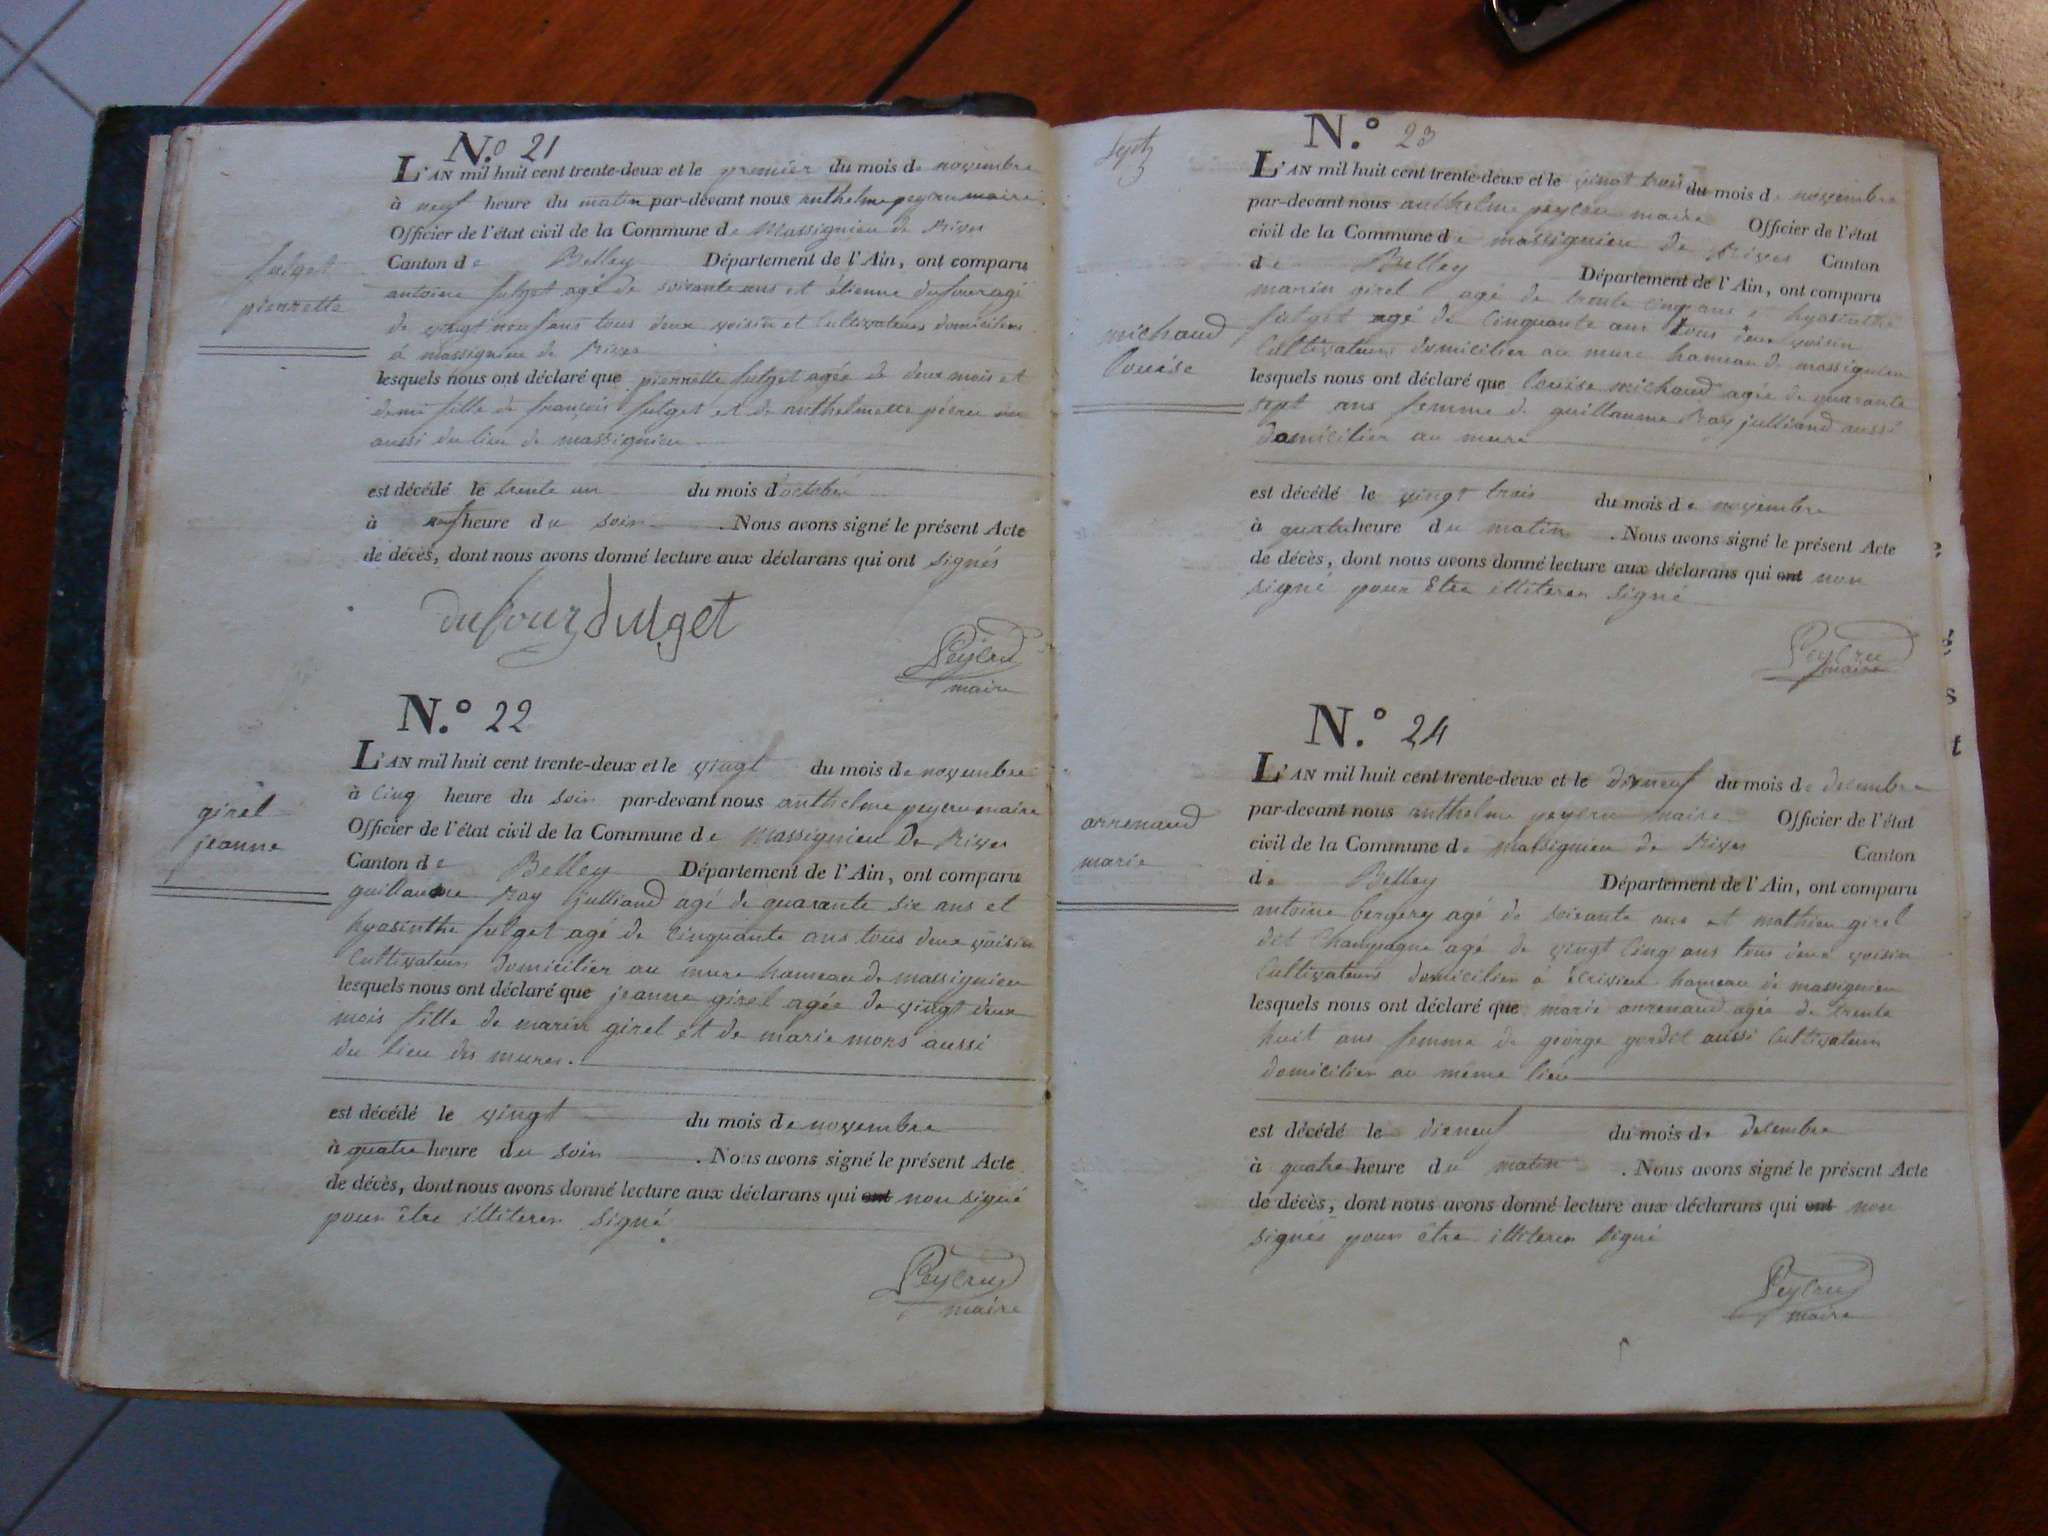 N.o 21
L'AN mil huit cent trente-deux et le premier du mois de novembre
à neuf heure du matin par-devant nous anthelme peycru maire
Officier de l'état civil de la Commune de Massignieu de Rives
Canton de Belley Département de l'Ain, ont comparu
fulget
pierrette
antoine fulget agé de soixante ans et étienne dufour agé
de vingt neuf ans tous deux voisin et Cultivateurs domicilier
à massignieu de Rives
lesquels nous ont déclaré que pierrette fulget agée de deux mois et
demi fille de françois fulget et de anthelmette
aussi du lieu de massignieu
est décédé le trente un du mois d'octobre
à neuf heure du soir. Nous avons signé le présent Acte
de décès, dont nous avons donné lecture aux déclarans qui ont signés
dufour fulget
Peycru
maire
N.o 22
L'AN mil huit cent trente-deux et le vingt du mois de novembre
à Cinq heure du soir par-devant nous anthelme peycru maire
Officier de l'état civil de la Commune de Massignieu De Rives
girel
jeanne
Canton de Belley Département de l'Ain, ont comparu
guillaume Roy julliand agé de quarante six ans et
hyasinthe fulget agé de Cinquante ans tous deux voisin
Cultivateurs domicilier au mure hameau de massignieu
lesquels nous ont déclaré que jeanne girel agée de vingt deux
mois fille de marin girel et de marie mors aussi
du lieu des mures.
est décédé le vingt du mois de novembre
à quatre heure du soir. Nous avons signé le présent Acte
de décès, dont nous avons donné lecture aux déclarans qui ont non signé
pour être illiterer signé
Peycru
maire
N.o 23
L'AN mil huit cent trente-deux et le vingt trois du mois de novembre
par-devant nous anthelme peycru maire Officier de l'état
civil de la Commune de massignieu de Rives Canton
de Belley Département de l'Ain, ont comparu
marin girel agé de trente Cinq ans, hyasinthe
michaud
louise
fulget agé de Cinquante ans tous deux voisin
Cultivateurs domicilier au mure hameau de massignieu
lesquels nous ont déclaré que louise michaud agée de quarante
sept ans femme de guillaume Roy julliand aussi
domicilier au mure
est décédé le vingt trois du mois de novembre
à quatre heure du matin. Nous avons signé le présent Acte
de décès, dont nous avons donné lecture aux déclarans qui ont non
signé pour Etre illiterer signé
Peycru
maire
N.o 24
L'AN mil huit cent trente-deux et le dixneuf du mois de decembre
par-devant nous anthelme peycru maire Officier de l'état
arrenaud
marie
civil de la Commune de massignieu de Rives Canton
de Belley Département de l'Ain, ont comparu
antoine bergery agé de soixante ans et mathieu girel
dit Champagne agé de vingt Cinq ans tous deux voisin
Cultivateurs domicilier à hameau de massignieu
lesquels nous ont déclaré que marie arrenaud agée de trente
huit ans femme de george aussi Cultivateur
domicilier au même lieu
est décédé le dixneuf du mois de decembre
à quatre heure du matin. Nous avons signé le présent Acte
de décès, dont nous avons donné lecture aux déclarans qui ont non
signés pour être illiterer signé
Peycru
maire